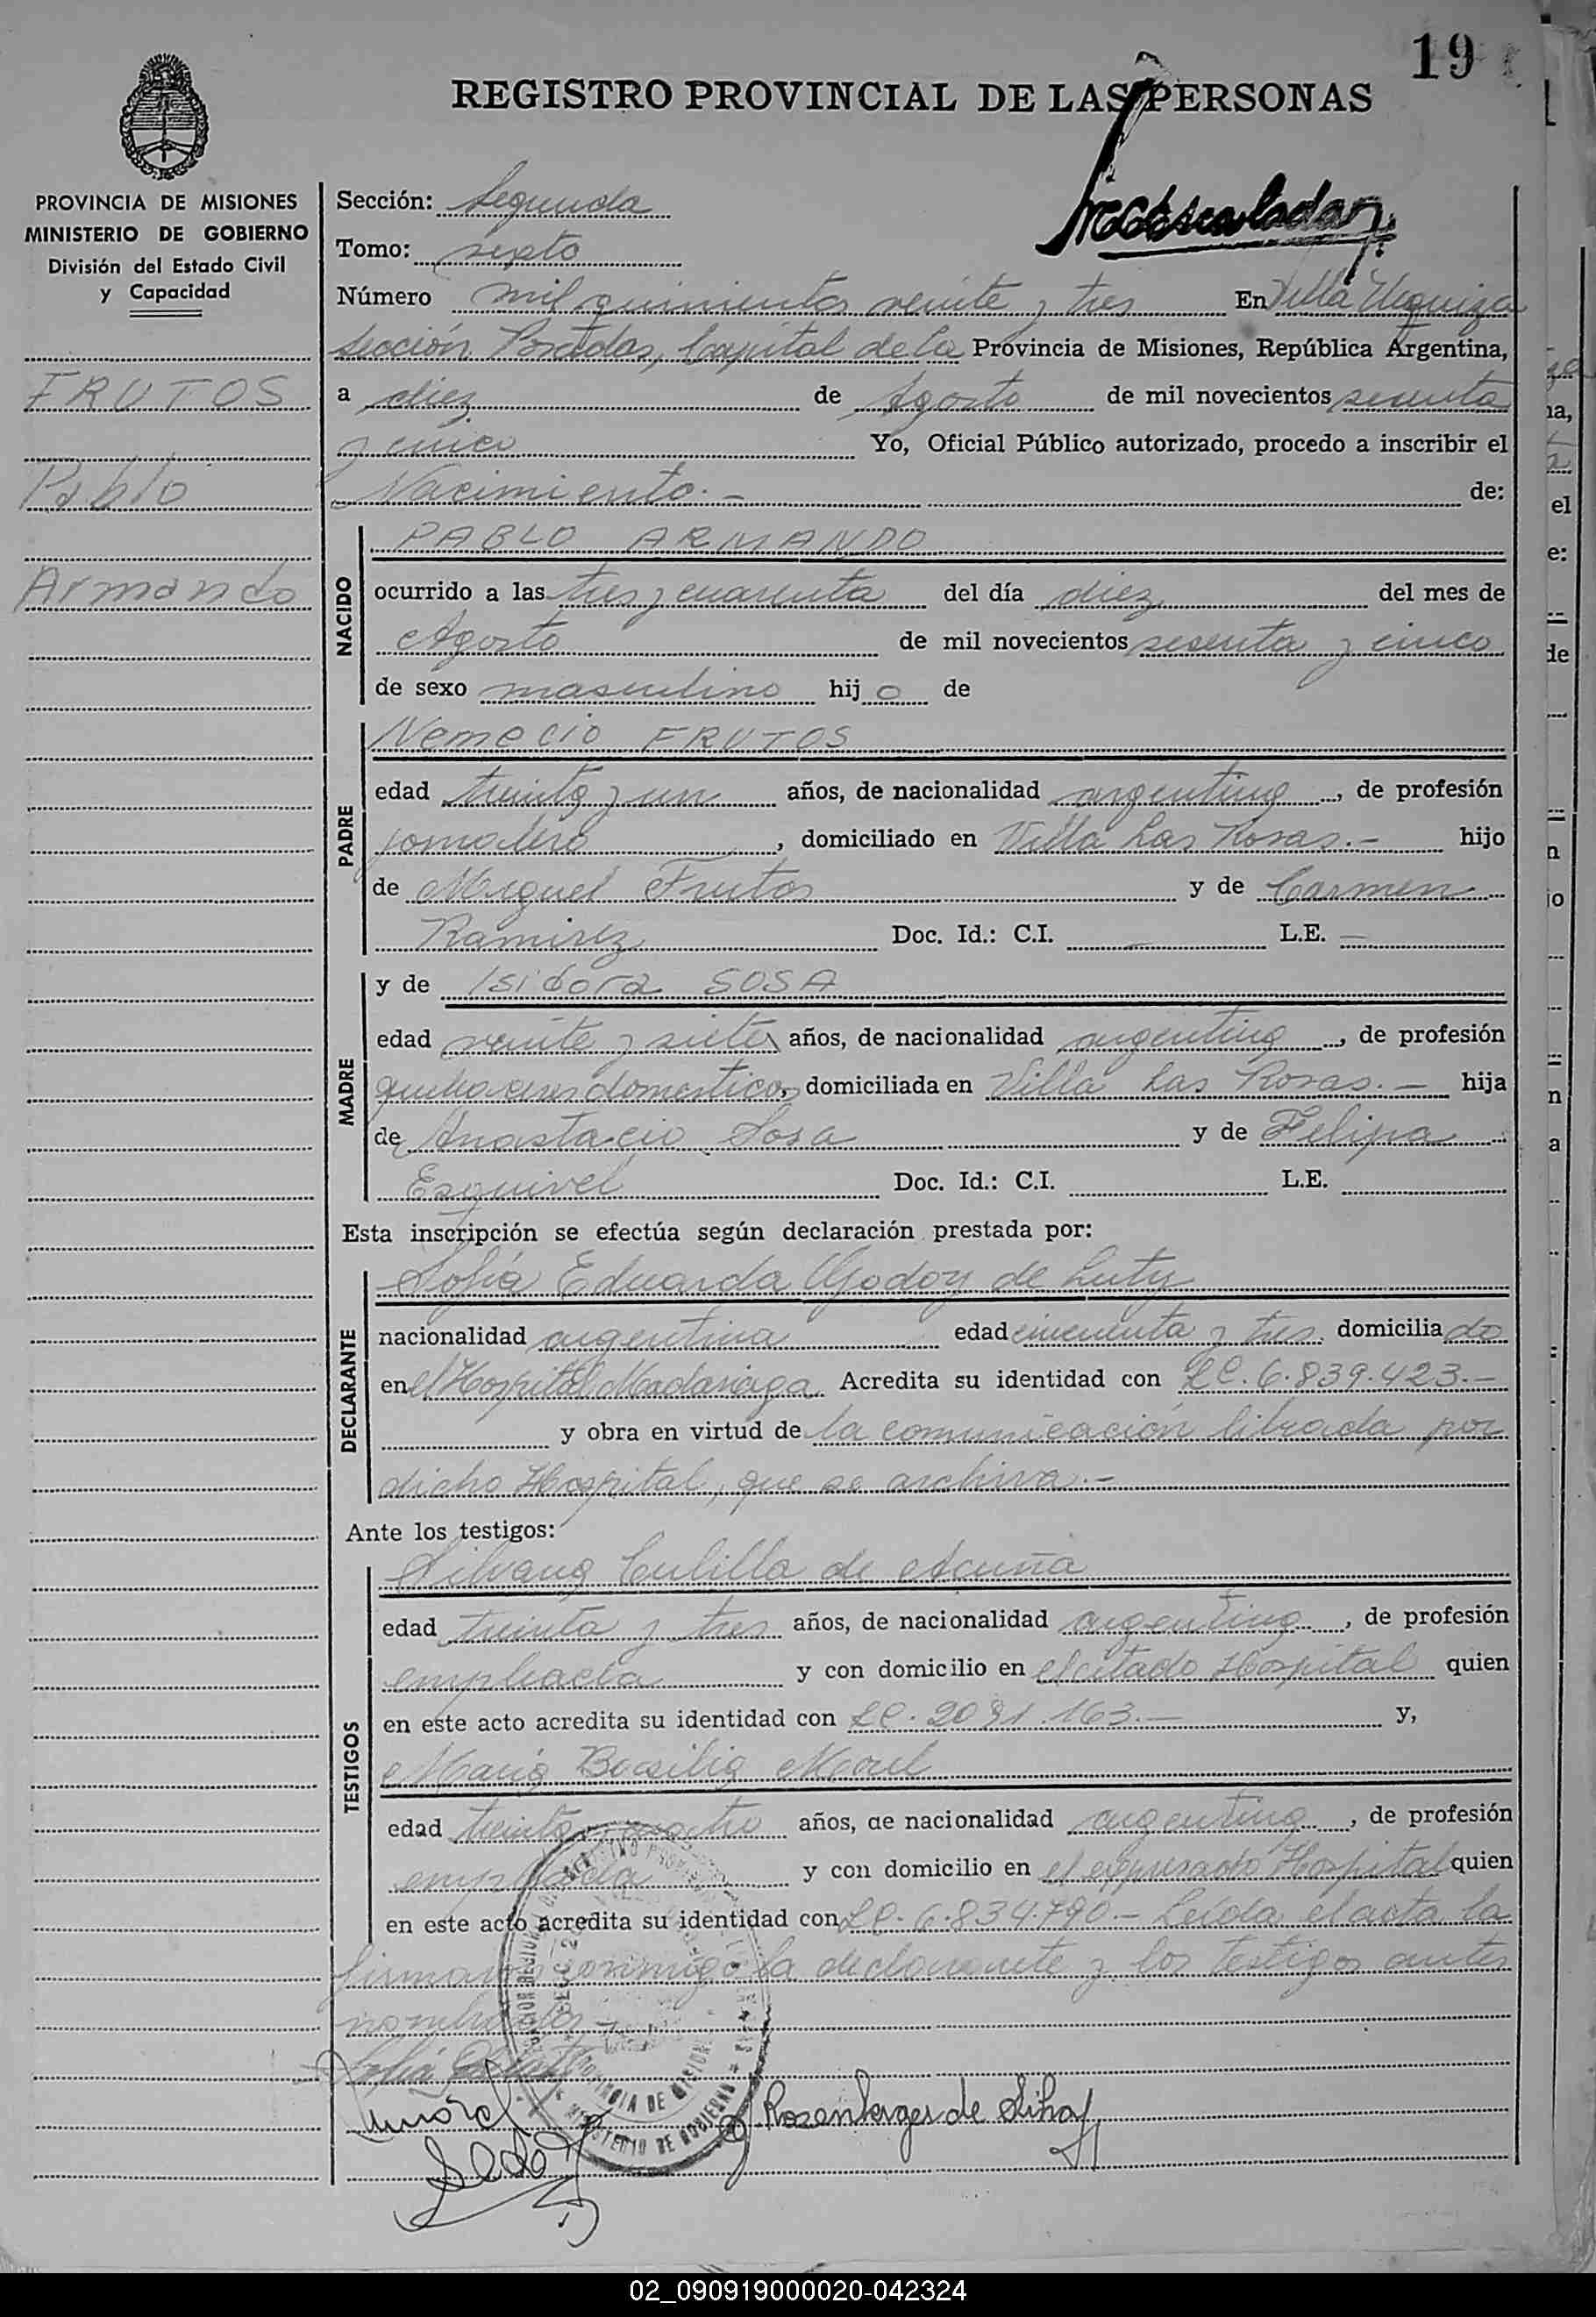 19
REGISTRO PROVINCIAL DE LAS PERSONAS
PROVINCIA DE MISIONES
MINISTERIO DE GOBIERNO
División del Estado Civil
y Capacidad
FRUTOS
Pablo
Armando
Sección: Segunda
Tomo: sexto
Número mil quinientos veinte y tres En Villa Urquiza
sección Posadas, Capital de la Provincia de Misiones, República Argentina,
a diez de Agosto de mil novecientos sesenta
y cinco Yo, Oficial Público autorizado, procedo a inscribir el
Nacimiento.- de:
NACIDO
PABLO ARMANDO
ocurrido a las tres y cuarenta del día diez del mes de
Agosto de mil novecientos sesenta y cinco
de sexo masculino hijo de
PADRE
Nemecio FRUTOS
edad treinta y un años, de nacionalidad argentina, de profesión
jornalero, domiciliado en Villa Las Rosas.- hijo
de Miguel Frutos y de Carmen
Ramirez Doc. Id.: C.I. - L.E. -
MADRE
y de Isidora SOSA
edad veinte y siete años, de nacionalidad argentina, de profesión
quehaceres domesticos, domiciliada en Villa Las Rosas.- hija
de Anastacio Sosa y de Felipa
Esquivel Doc. Id.: C.I. L.E.
Esta inscripción se efectúa según declaración prestada por:
DECLARANTE
Sofía Eduarda Godoy de Luty
nacionalidad argentina edad cincuenta y tres domiciliado
en el Hospital Madariaga. Acredita su identidad con LC. 6.839.423.-
y obra en virtud de la comunicación librada por
dicho Hospital, que se archiva.-
Ante los testigos:
TESTIGOS
Silvana Cubilla de Acuña
edad treinta y tres años, de nacionalidad argentina, de profesión
empleada y con domicilio en el citado Hospital quien
en este acto acredita su identidad con LC. 2091.163.- y,
María Basilia Morel
edad treinta y cuatro años, de nacionalidad argentina, de profesión
empleada y con domicilio en el expresado Hospital quien
en este acto acredita su identidad con LC. 6.834.790.- Leída el acta la
firman conmigo la declarante y los testigos antes
nombrados.-
Morel
Rosenberger de Silva
PROVINCIA DE MISIONES
MINISTERIO DE GOBIERNO
02_090919000020-042324